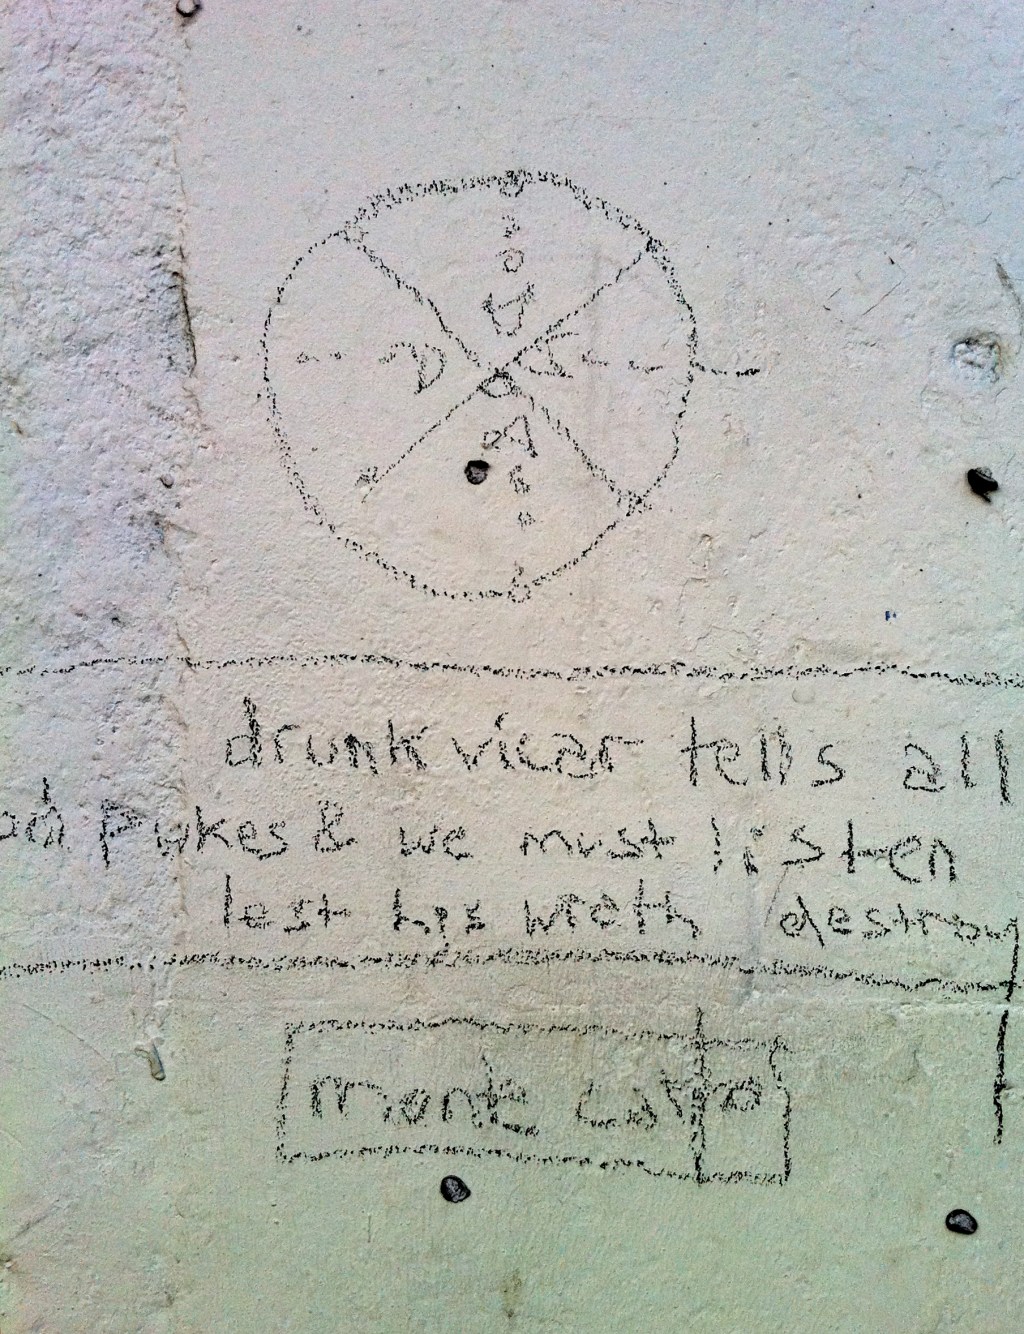 drunk vicar tells all
Pykes & we must listen
lest his wrath destroy
monte carlo